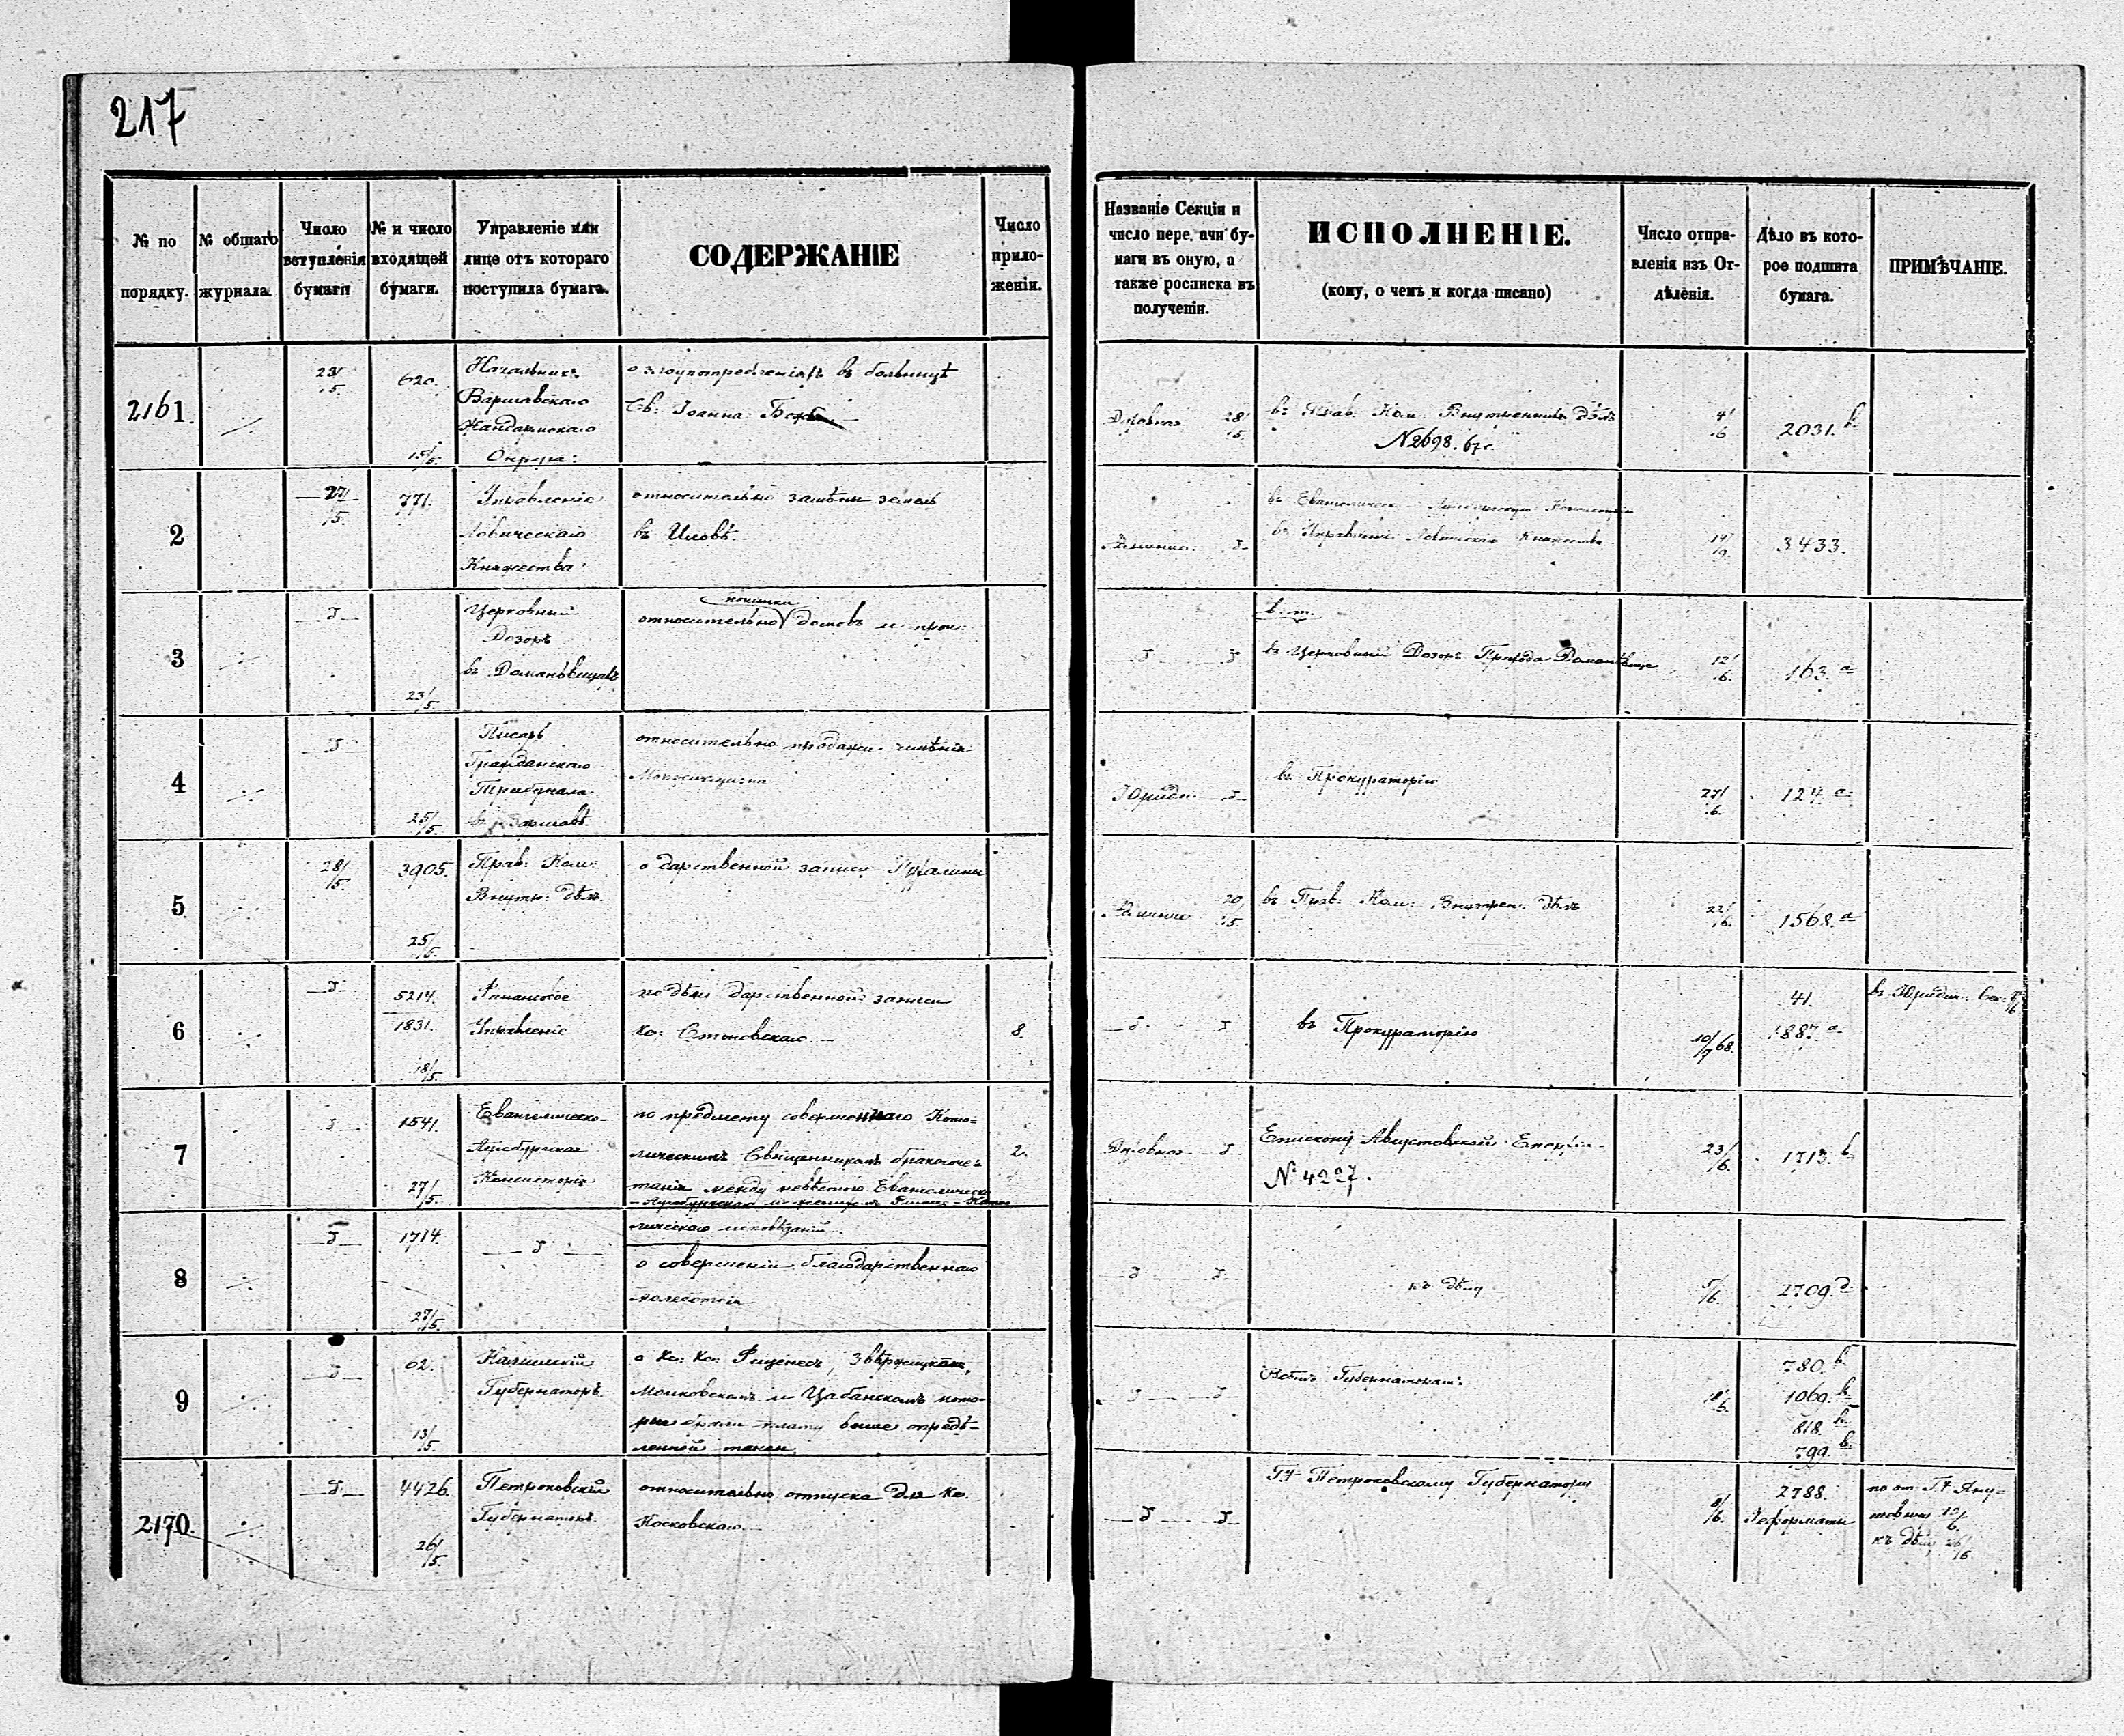 217
№ по порядку.
№ общаго журнала.
Число вступленія бумаги
№ и число входящей бумаги.
Управленіе или лице отъ котораго поступила бумага.
СОДЕРЖАНІЕ
Число приложеній.
Названіе Секціи и число передачи бумаги въ оную, а также росписка въ полученіи.
ИСПОЛНЕНІЕ.
(кому, о чемъ и когда писано)
Число отправленія изъ Отдѣленія.
Дѣло въ которое подшита бумага.
ПРИМѢЧАНІЕ.
2161.
23/5.
620.
15/5.
Начальникъ
Варшавскаго
Жандармскаго
Округа:
о злоупотребленіяхъ въ больницѣ
Св: Іоанна
Духовная 28/5.
въ Прав: Ком: Внутреннихъ Дѣлъ
N 2698. 67 г.
4/6
2031. b
2
27/5.
771.
Управленіе
Ловическаго
Княжества
относительно замѣны земель
въ Иловѣ.
въ Управленіе Ловичскаго Княжества
19/9.
3433.
3
23/5
Церковный
Дозоръ
въ Доманѣвицахъ
починка
относительно домовъ и проч:
в. т.
въ Церковный Дозоръ Прихода Доманѣвице
12/6.
163. a
4
25/5.
Писарь
Гражданскаго
Трибунала
въ Варшавѣ.
относительно продажи имѣнія
Юриди.
въ Прокураторію
27/6.
124. a
5
28/5.
3905.
25/5.
Прав: Ком:
Внутр: дѣлъ.
о дарственной записи
въ Прав: Ком: Внутрен: Дѣлъ
22/6.
1568. a
6
5214.
1831.
18/5.
Финансовое
Управленіе
по дѣлу дарственной записи
Кс: Стоковскаго.
8.
въ Прокураторію
10/7 68.
41.
1887. a
въ Юридич: Сек:
7
1541.
27/5.
Евангелическо-
Аугсбургская
Консисторія
по предмету совершеннаго Като-
лическимъ Священникомъ бракосоче-
танія между невѣстою Евангелическо
-Аугсбургскаго и женихомъ Римско-Като
лическаго исповѣданій.
2.
Духовная
Епископу Августовской Епархіи
N 4227.
23/6.
1713. b
8
1714.
27/5.
о совершеніи благодарственнаго
молебствія
къ дѣлу
5/6.
2709. d
9
02.
13/5.
Калишскій
Губернаторъ.
о Кс: Кс:
и Цабанскомъ кото-
рые брали плату выше опредѣ-
ленной таксы.
Губернаторамъ
18/6.
780. b
1069. b
818. b
799. b
2170.
4426.
26/5.
Петроковскій
Губернаторъ.
относительно отпуска для Кс.
Косковскаго.
Гу Петроковскому Губернатору
8/6.
2788.
Реформаты
къ дѣлу 26/6